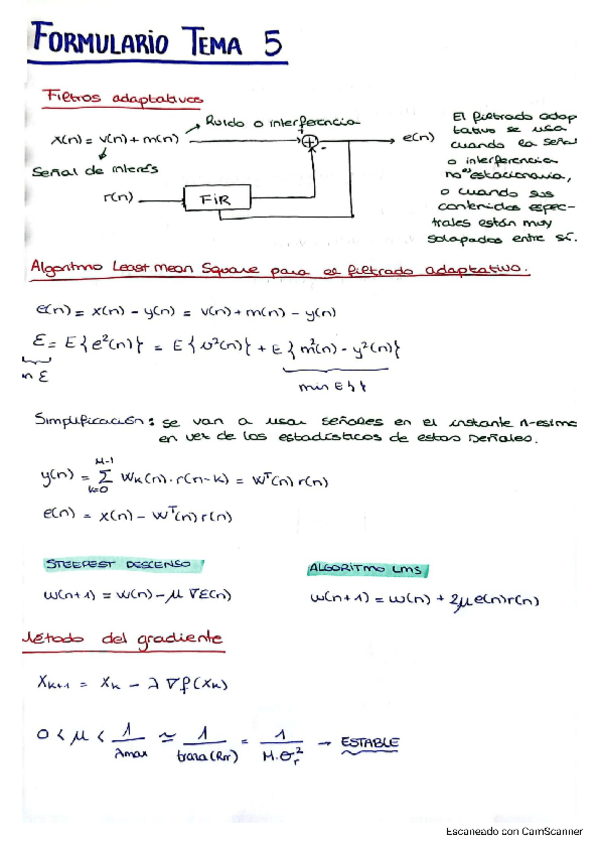 FORMULARIO TEMA 5
Filtros adaptativos
Ruido o interferencia
x(n) = v(n) + m(n)
+
-
e(n)
Señal de interés
r(n)
FIR
El filtrado adap
tativo se usa
cuando la señal
o interferencia
no es estacionaria,
o cuando sus
contenidos espec-
trales están muy
solapados entre sí.
Algoritmo Least mean Square para el filtrado adaptativo.
e(n) = x(n) - y(n) = v(n) + m(n) - y(n)
E = E{e²(n)} = E{v²(n)} + E{m²(n) - y²(n)}
n E
min E{}
Simplificación: se van a usar señales en el instante n-esimo
en vez de los estadísticos de estas señales.
y(n) = Σ_{k=0}^{M-1} Wk(n)·r(n-k) = Wᵀ(n) r(n)
e(n) = x(n) - Wᵀ(n) r(n)
STEEPEST DESCENSO
ALGORITMO LMS
w(n+1) = w(n) - μ ∇E(n)
w(n+1) = w(n) + 2μe(n)r(n)
Método del gradiente
Xk+1 = Xk - λ ∇f(Xk)
0 < μ < 1/λmax ≃ 1/traza(Rrr) = 1/(M·σr²) → ESTABLE
Escaneado con CamScanner